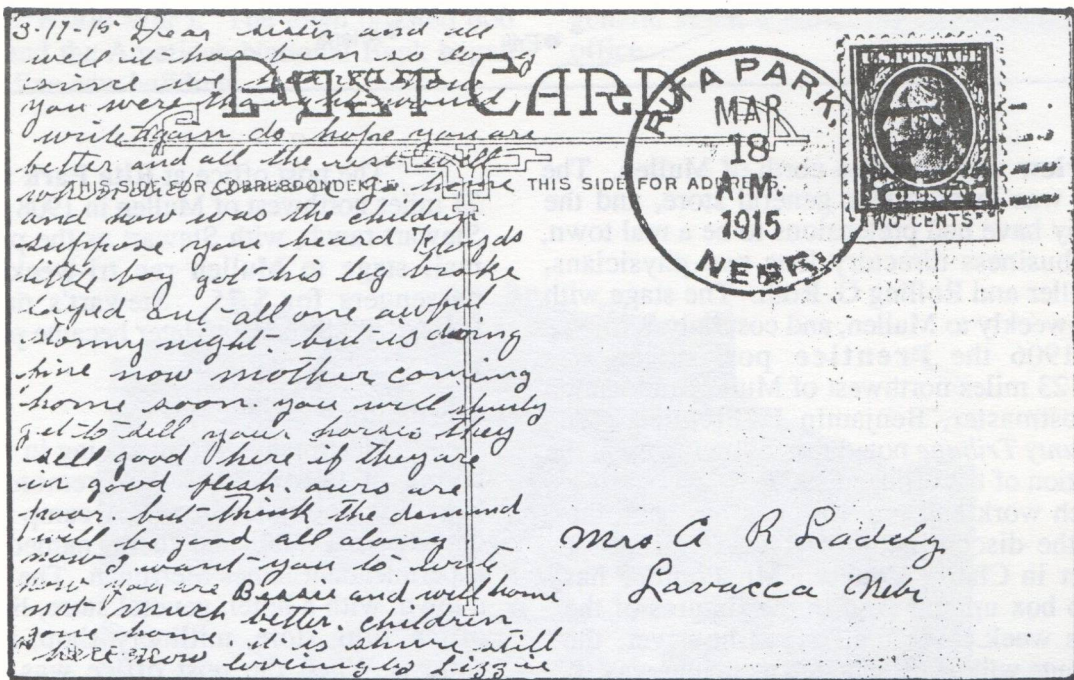 3-17-15 Dear sister and all
well it has been so long
since I heard how
you were thought would
write again do hope you are
better and all the rest well
home
and how was the children
suppose you heard Floyds
little boy got his thigh broke
out all one awful
stormy night but is doing
fine now mother coming
home soon. you will surely
get to sell your horses they
sell good here if they're
in good flesh. ours are
poor. but think the demand
will be good all along
now I want you to write
how you are Bessie and will home
not much better. children
gone to school it is shure still
here now lovingly Lizzie
POST CARD
THIS SIDE FOR CORRESPONDENCE
THIS SIDE FOR ADDRESS.
PARK,
MAR
18
A.M.
1915
NEBR.
U.S. POSTAGE
TWO CENTS
Mrs A R Laddy
Nebr